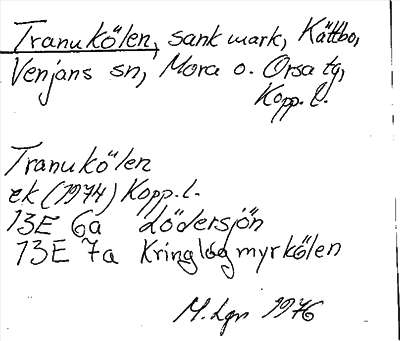 Tranukölen, sank mark, Kättbo,
Venjans sn, Mora o. Orsa tg,
Kopp. l.
Tranukölen
ek (1974) Kopp. l.
13E 6a Lödersjön
13E 7a Kringlogmyrkölen
M. Lgn 1976